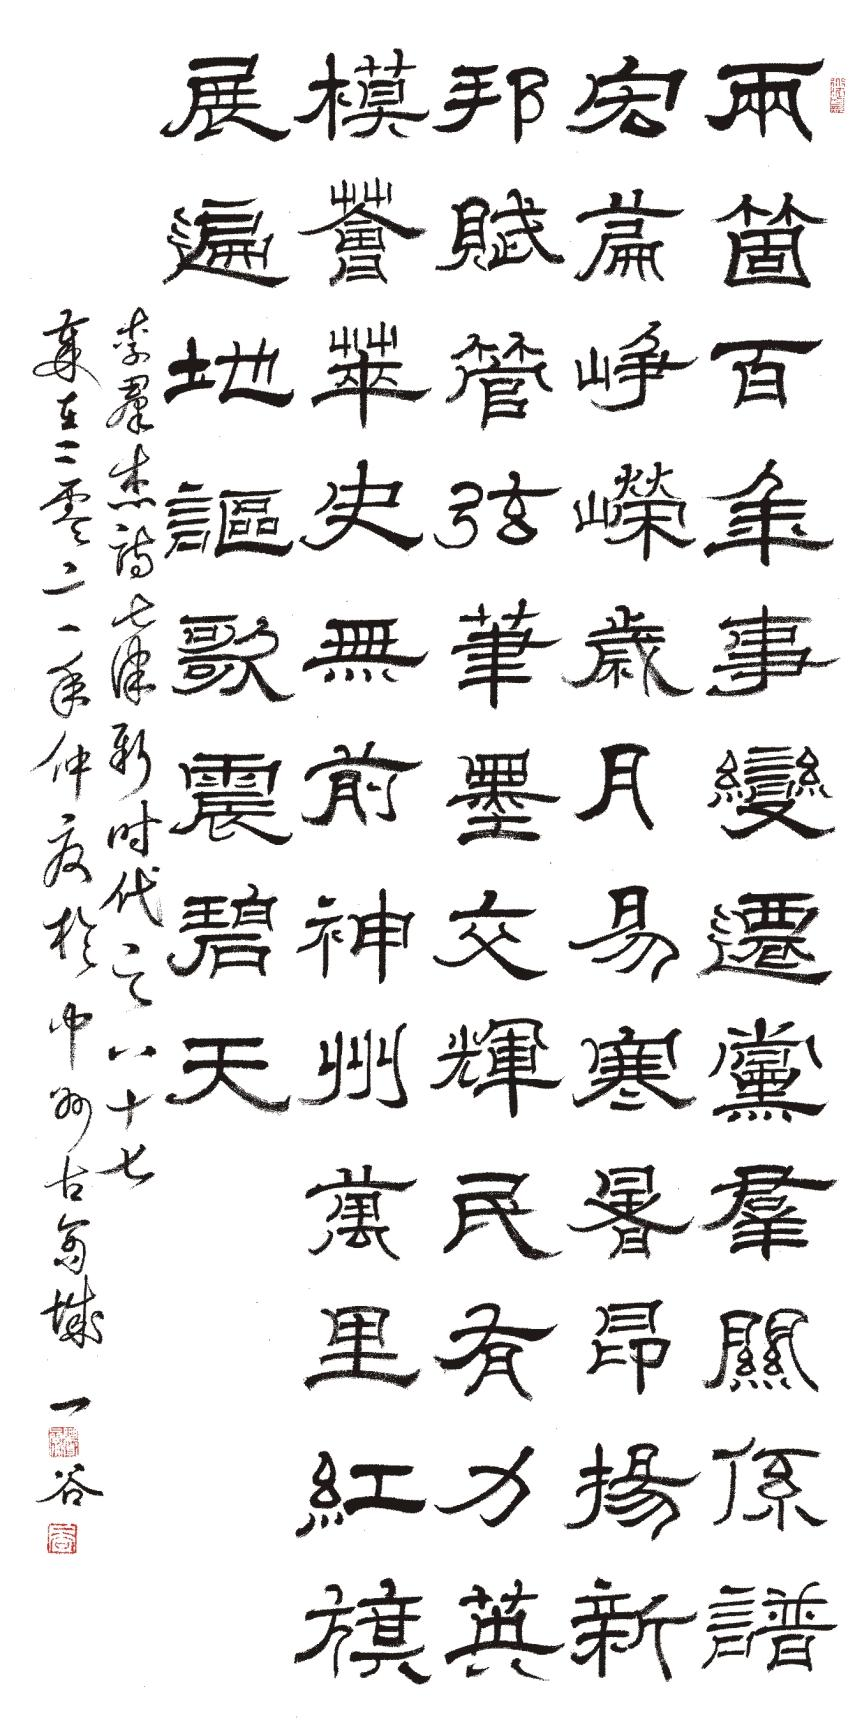 兩箇百年事變遷黨羣關係譜
宏篇崢嶸歲月易寒暑昂揚新
邦賦管弦筆墨交輝民有力英
模薈萃史無前神州萬里紅旗
展遍地謳歌震碧天
李羣杰詩七律新时代之八十七
在二零二一年仲夏於中州古商城 一谷